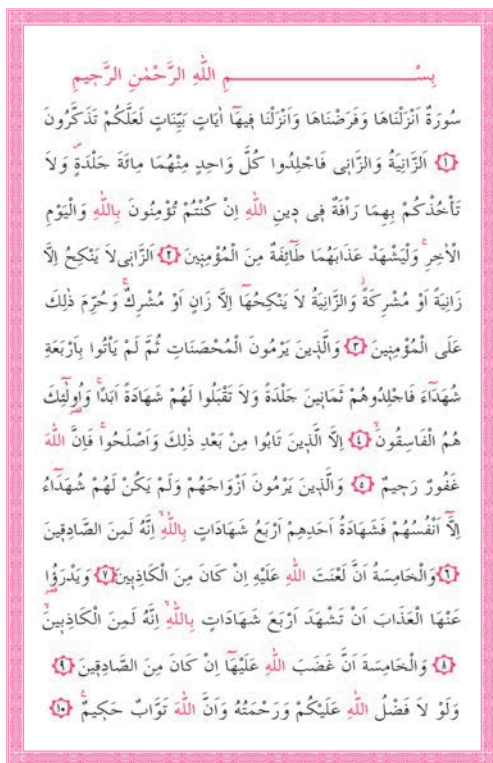 بِسْــــــــمِ اللّٰهِ الرَّحْمٰنِ الرَّحٖيمِ
سُورَةٌ اَنْزَلْنَاهَا وَفَرَضْنَاهَا وَاَنْزَلْنَا فٖيهَٓا اٰيَاتٍ بَيِّنَاتٍ لَعَلَّكُمْ تَذَكَّرُونَ
﴿١﴾ اَلزَّانِيَةُ وَالزَّانٖى فَاجْلِدُوا كُلَّ وَاحِدٍ مِنْهُمَا مِائَةَ جَلْدَةٍۖ وَلَا
تَأْخُذْكُمْ بِهِمَا رَاْفَةٌ فٖى دٖينِ اللّٰهِ اِنْ كُنْتُمْ تُؤْمِنُونَ بِاللّٰهِ وَالْيَوْمِ
الْاٰخِرِۚ وَلْيَشْهَدْ عَذَابَهُمَا طَٓائِفَةٌ مِنَ الْمُؤْمِنٖينَ ﴿٢﴾ اَلزَّانٖى لَا يَنْكِحُ اِلَّا
زَانِيَةً اَوْ مُشْرِكَةًۘ وَالزَّانِيَةُ لَا يَنْكِحُهَٓا اِلَّا زَانٍ اَوْ مُشْرِكٌۚ وَحُرِّمَ ذٰلِكَ
عَلَى الْمُؤْمِنٖينَ ﴿٣﴾ وَالَّذٖينَ يَرْمُونَ الْمُحْصَنَاتِ ثُمَّ لَمْ يَأْتُوا بِاَرْبَعَةِ
شُهَدَٓاءَ فَاجْلِدُوهُمْ ثَمَانٖينَ جَلْدَةً وَلَا تَقْبَلُوا لَهُمْ شَهَادَةً اَبَدًاۚ وَاُولٰٓئِكَ
هُمُ الْفَاسِقُونَۙ ﴿٤﴾ اِلَّا الَّذٖينَ تَابُوا مِنْ بَعْدِ ذٰلِكَ وَاَصْلَحُواۚ فَاِنَّ اللّٰهَ
غَفُورٌ رَحٖيمٌ ﴿٥﴾ وَالَّذٖينَ يَرْمُونَ اَزْوَاجَهُمْ وَلَمْ يَكُنْ لَهُمْ شُهَدَٓاءُ
اِلَّٓا اَنْفُسُهُمْ فَشَهَادَةُ اَحَدِهِمْ اَرْبَعُ شَهَادَاتٍ بِاللّٰهِۙ اِنَّهُ لَمِنَ الصَّادِقٖينَ
﴿٦﴾ وَالْخَامِسَةُ اَنَّ لَعْنَتَ اللّٰهِ عَلَيْهِ اِنْ كَانَ مِنَ الْكَاذِبٖينَ ﴿٧﴾ وَيَدْرَؤُا
عَنْهَا الْعَذَابَ اَنْ تَشْهَدَ اَرْبَعَ شَهَادَاتٍ بِاللّٰهِۙ اِنَّهُ لَمِنَ الْكَاذِبٖينَۙ
﴿٨﴾ وَالْخَامِسَةَ اَنَّ غَضَبَ اللّٰهِ عَلَيْهَٓا اِنْ كَانَ مِنَ الصَّادِقٖينَ ﴿٩﴾
وَلَوْ لَا فَضْلُ اللّٰهِ عَلَيْكُمْ وَرَحْمَتُهُ وَاَنَّ اللّٰهَ تَوَّابٌ حَكٖيمٌۚ ﴿١٠﴾